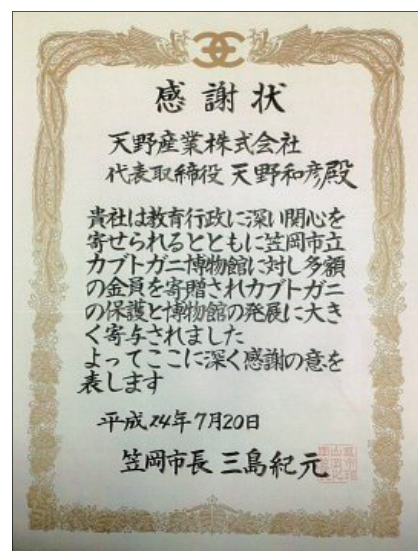 感謝状
天野産業株式会社
代表取締役 天野和彦殿
貴社は教育行政に深い関心を
寄せられるとともに笠岡市立
カブトガニ博物館に対し多額
の金員を寄贈されカブトガニ
の保護と博物館の発展に大き
く寄与されました
よってここに深く感謝の意を
表します
平成24年7月20日
笠岡市長 三島紀元